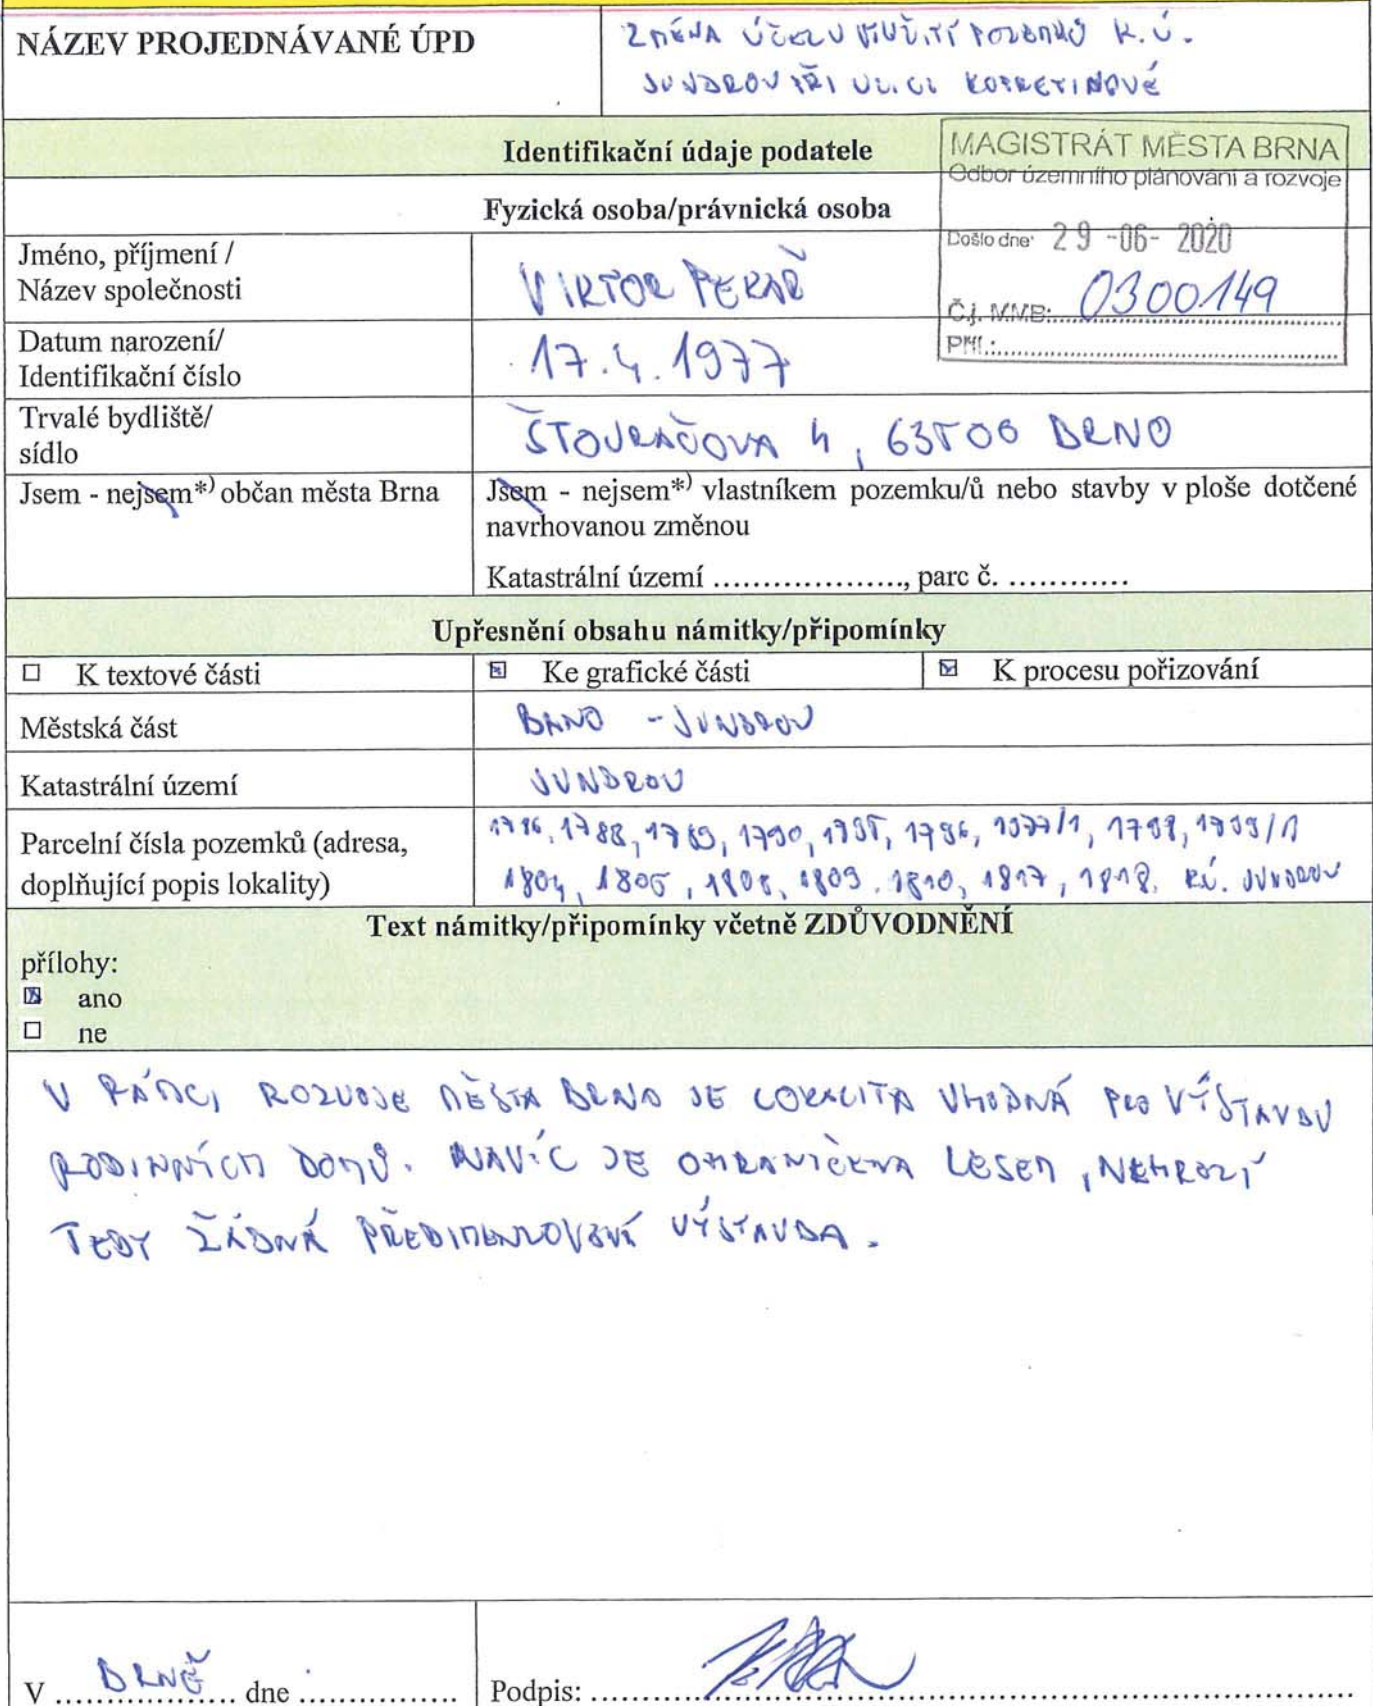 NÁZEV PROJEDNÁVANÉ ÚPD
ZMĚNA ÚČELU VYUŽITÍ POZEMKŮ K.Ú.
JUNDROV PŘI ULICI KOPRETINOVÉ
Identifikační údaje podatele
MAGISTRÁT MĚSTA BRNA
Odbor územního plánování a rozvoje
Fyzická osoba/právnická osoba
Došlo dne: 29 -06- 2020
Č.j. MMB: 0300149
Příl.:
Jméno, příjmení /
Název společnosti
VIKTOR PEKAŘ
Datum narození/
Identifikační číslo
17.4.1977
Trvalé bydliště/
sídlo
ŠTOURAČOVA 4, 63500 BRNO
Jsem - nejsem*) občan města Brna
Jsem - nejsem*) vlastníkem pozemku/ů nebo stavby v ploše dotčené
navrhovanou změnou
Katastrální území ..................., parc č. ............
Upřesnění obsahu námitky/připomínky
K textové části
Ke grafické části
K procesu pořizování
Městská část
BRNO - JUNDROV
Katastrální území
JUNDROV
Parcelní čísla pozemků (adresa,
doplňující popis lokality)
1788, 1790, 1795, 1796, 1798, 1799/1
1804, 1805, 1808, 1809, 1810, 1817, 1818, K.Ú. JUNDROV
Text námitky/připomínky včetně ZDŮVODNĚNÍ
přílohy:
ano
ne
V RÁMCI ROZVOJE MĚSTA BRNO JE LOKALITA VHODNÁ PRO VÝSTAVBU
RODINNÍCH DOMŮ. NAVÍC JE OHRANIČENA LESEM, NEHROZÍ
TEDY ŽÁDNÁ PŘEDIMENZOVANÁ VÝSTAVBA.
V BRNĚ dne ...............
Podpis: